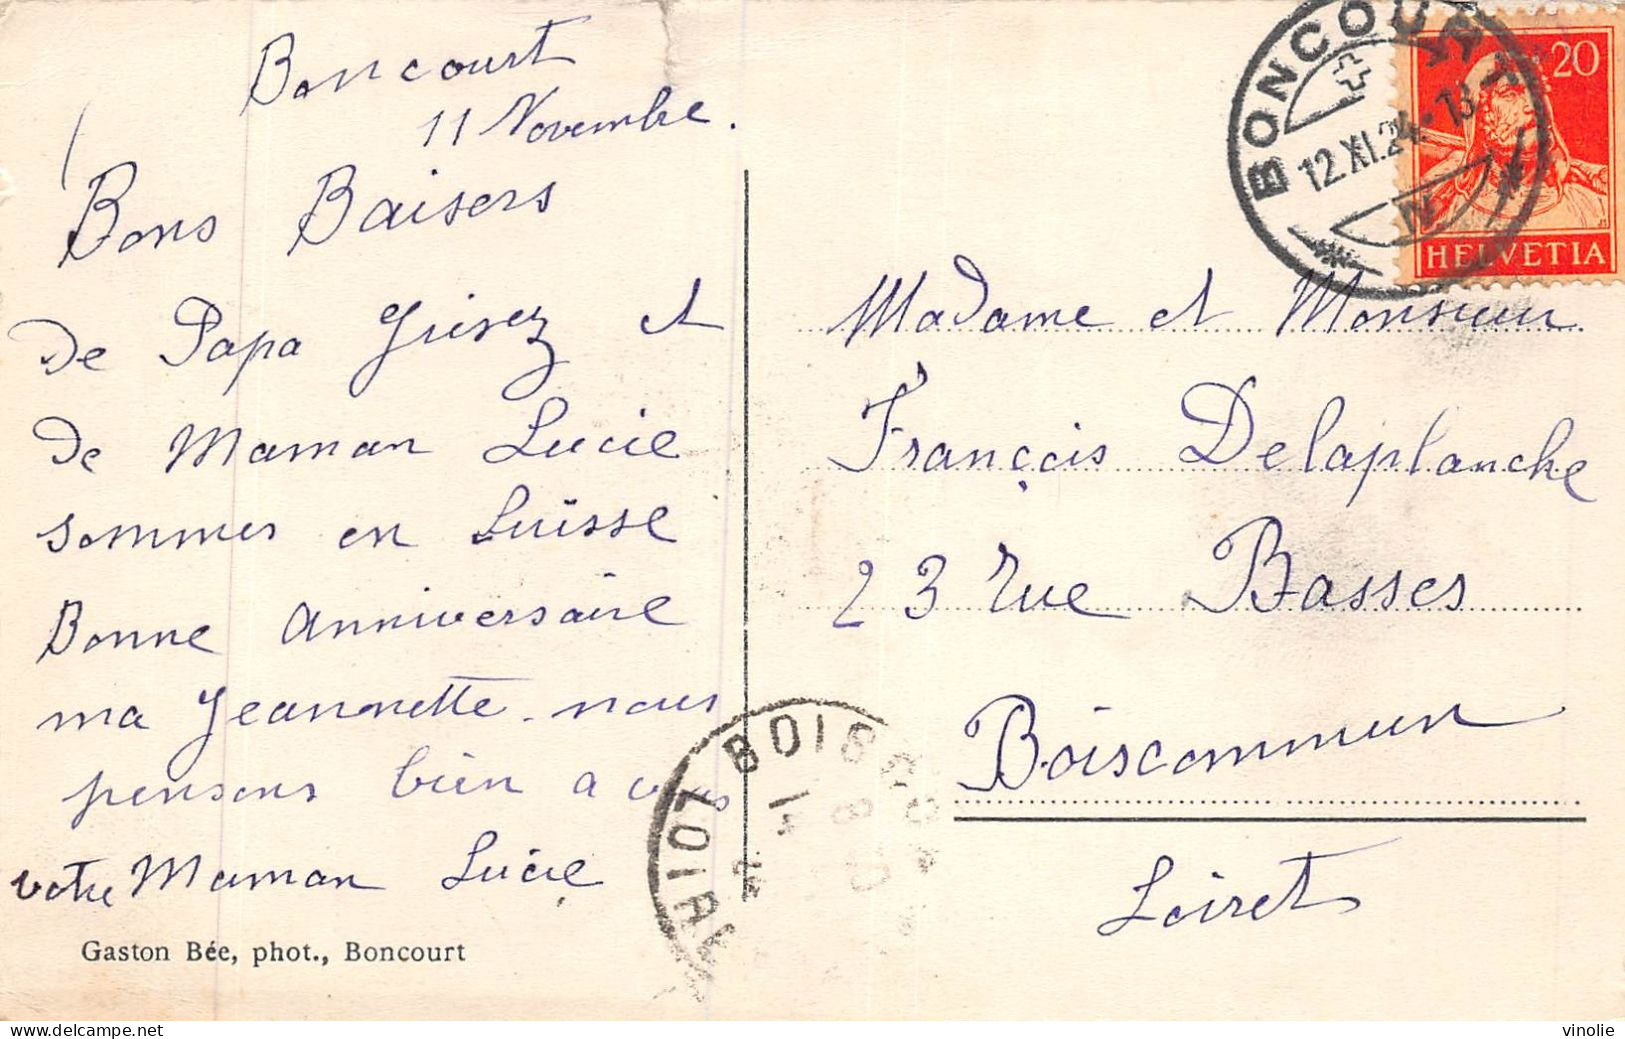 Boncourt
11 Novembre.
Bons Baisers
de Papa Grisez et
de Maman Lucie
sommes en Suisse
Bonne anniversaire
ma Jeannette. nous
pensons bien a vous
votre Maman Lucie
Gaston Bée, phot., Boncourt
BONCOURT
12.XI.24.-13
20
HELVETIA
Madame et Monsieur
François Delaplanche
23 rue Basses
Boiscommun
Loiret
LOIRET
delcampe.net
vinolie